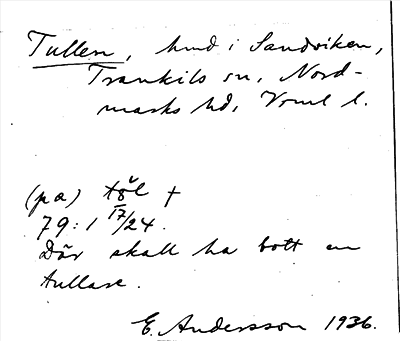 Tullen, hmd i Sandviken,
Trankils sn, Nord-
marks hd, Vrml l.
(pa) tɤ̌l †
79:1 17/24.
Där skall ha bott en
tullare.
E. Andersson 1936.